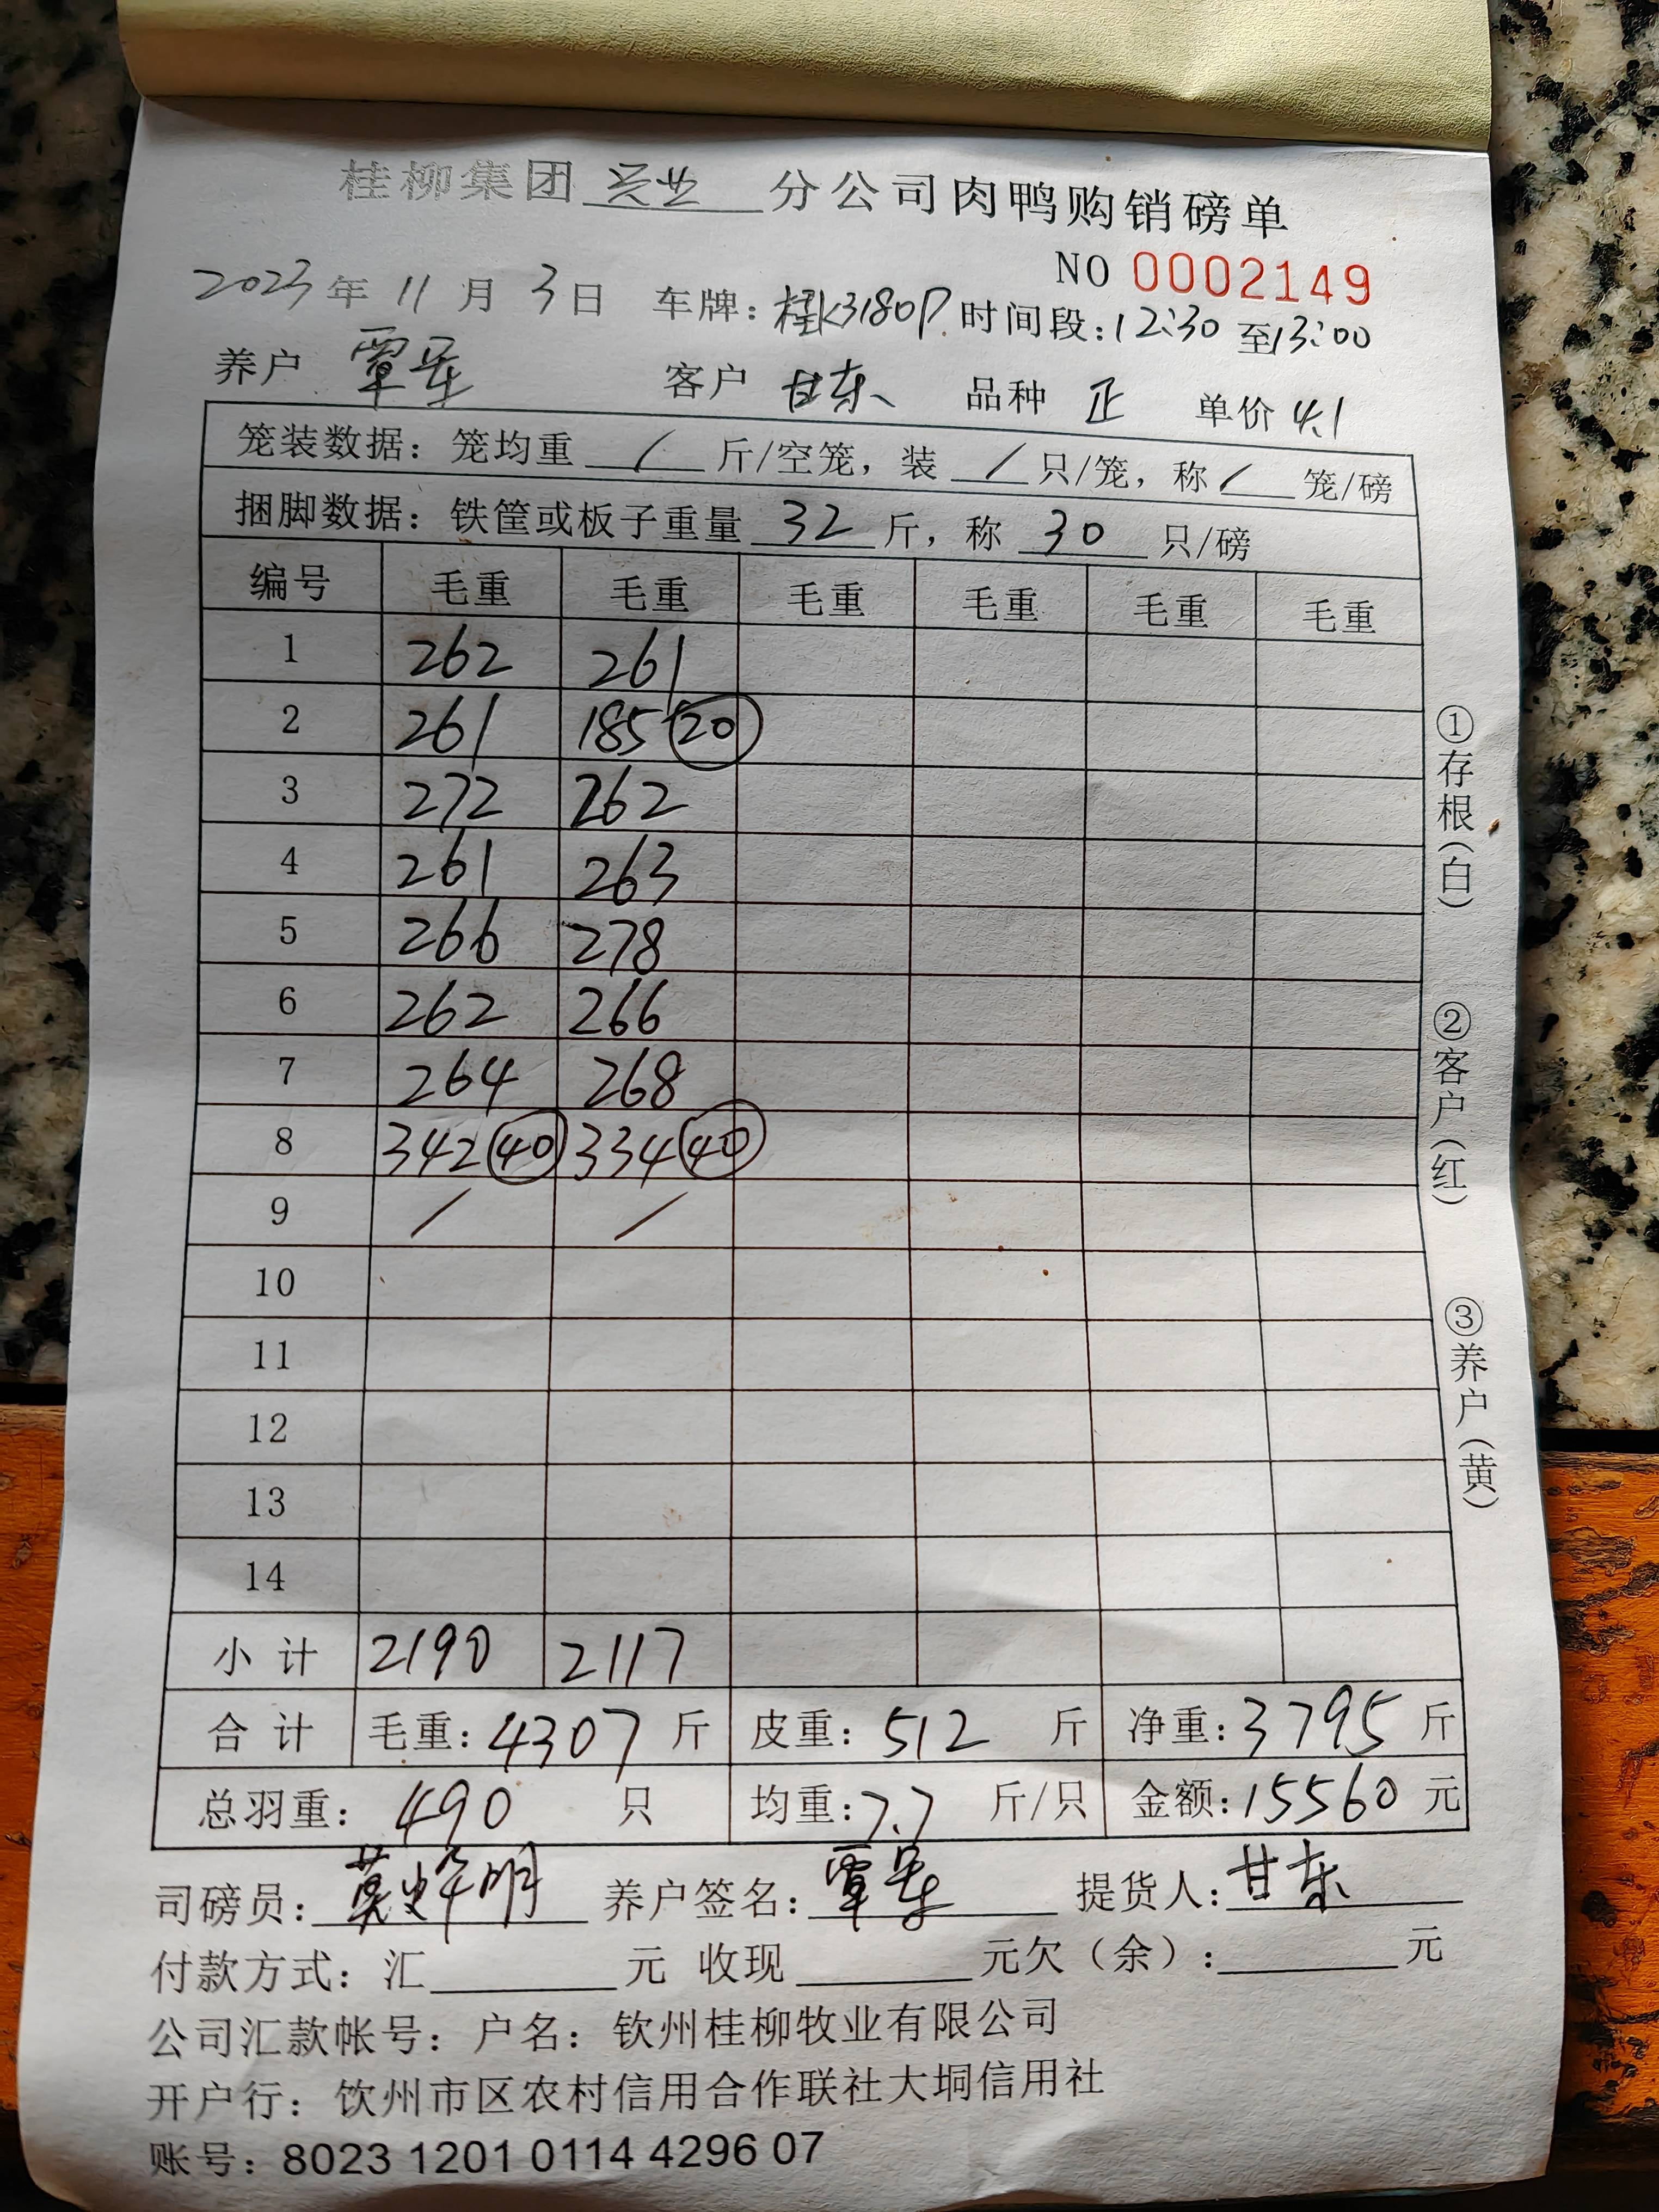 桂柳集团 兴业 分公司肉鸭购销磅单
NO 0002149
2023年 11月 3日 车牌：桂K3180P 时间段：12:30至13:00
养户 覃 客户 甘东 品种 正 单价 4.1
笼装数据：笼均重 / 斤/空笼，装 / 只/笼，称 / 笼/磅
捆脚数据：铁筐或板子重量 32 斤，称 30 只/磅
编号 毛重 毛重 毛重 毛重 毛重 毛重
1 262 261
2 261 185 20
3 272 262
4 261 263
5 266 278
6 262 266
7 264 268
8 342 40 334 40
9 / /
10
11
12
13
14
小计 2190 2117
合计 毛重：4307 斤 皮重：512 斤 净重：3795 斤
总羽重：490 只 均重：7.7 斤/只 金额：15560 元
司磅员：莫 明 养户签名：覃 提货人：甘东
付款方式：汇 元 收现 元欠（余）： 元
公司汇款帐号：户名：钦州桂柳牧业有限公司
开户行：钦州市区农村信用合作联社大垌信用社
账号：8023 1201 0114 4296 07
①存根（白）
②客户（红）
③养户（黄）